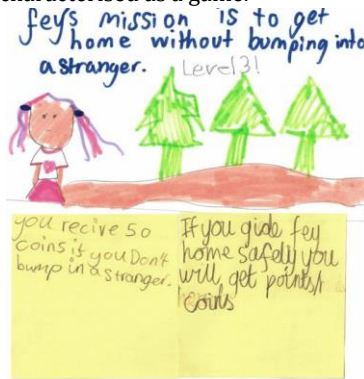 characterised as a game.
feys mission is to get
home without bumping into
a stranger.
Level 3!
you recive 50
coins if you Don't
bump in a stranger.
If you gide fey
home safely you
will get points/
coins